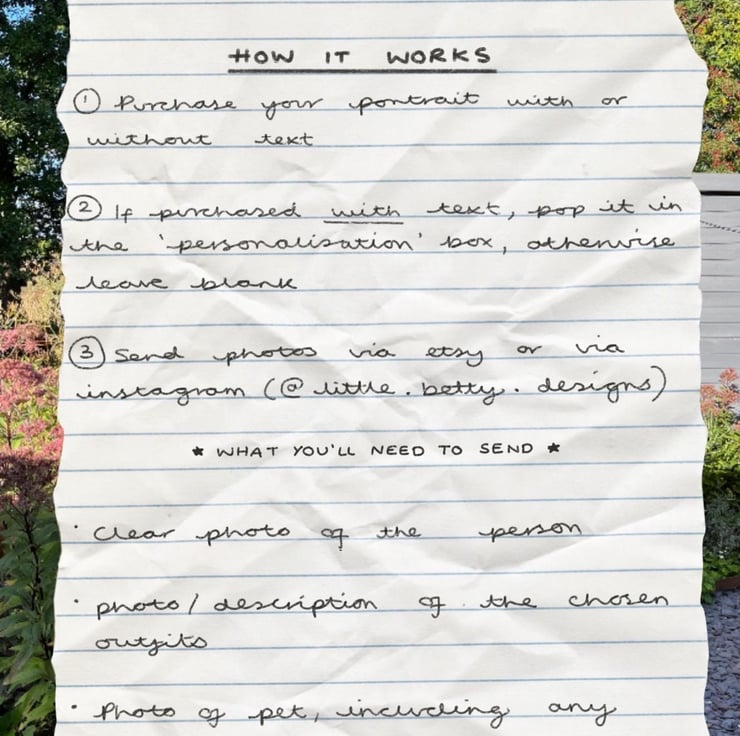 HOW IT WORKS
① Purchase your portrait with or
without text
② If purchased with text, pop it in
the 'personalisation' box, otherwise
leave blank
③ Send photos via etsy or via
instagram (@little.betty.designs)
★ WHAT YOU'LL NEED TO SEND ★
• Clear photo of the person
• photo/description of the chosen
outfits
• Photo of pet, including any